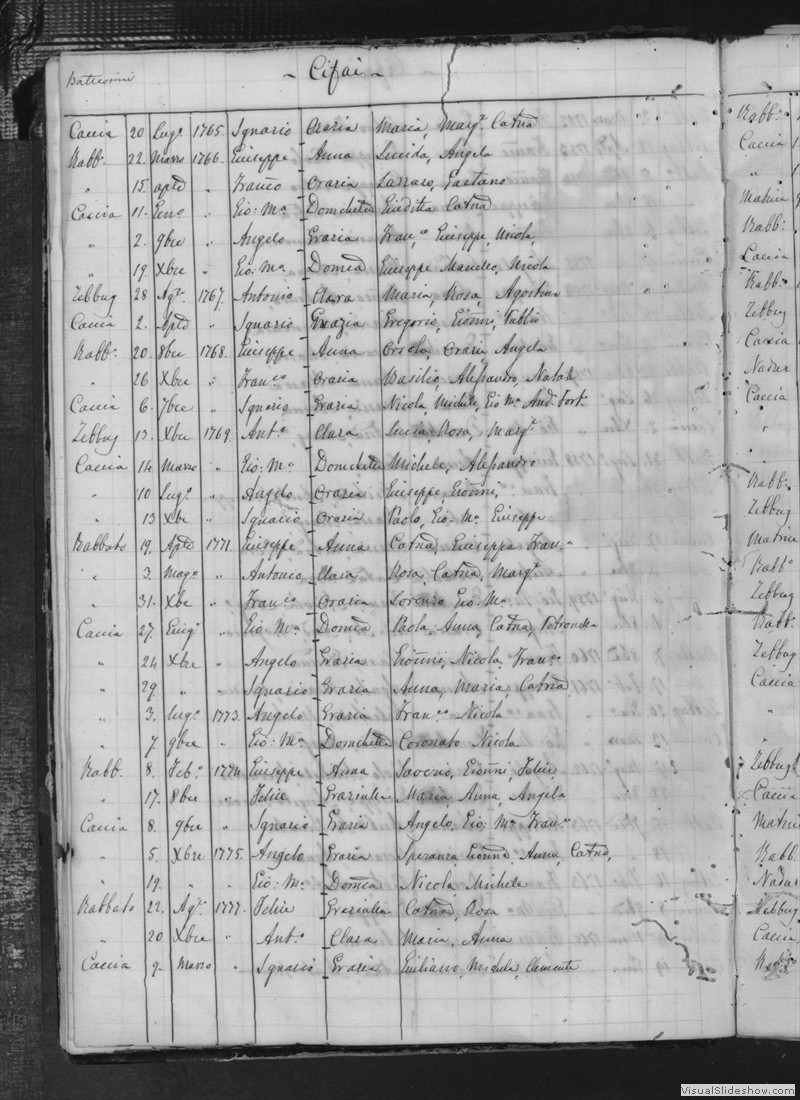 Battesimi
- Cifai -
Caccia 20 Lugo 1765. Ignazio Grazia Maria, Margta. Catña
Rabbo. 22. Marzo 1766. Giuseppe Anna Lucida, Angela
" 15. aple " Franco Grazia Lazzaro, Gaetano
Caccia 11. Geno " Gio: Ma. Domchella Giuditta Catña
" 2. 9bre " Angelo Grazia Franco Giuseppe, Nicola,
" 19. Xbre " Gio: Ma. Domca Giuseppe Nicola
Zebbug 28 Agto. 1767. Antonio Clara Maria, Rosa, Agostina
Caccia 2. Aple " Ignazio Grazia Gregorio, Gioñni, Publio
Rabbo. 20. 8bre 1768. Giuseppe Anna Orsola, Grazia, Angela
" 26 Xbre " Franco Grazia Basilio, Alessandro, Natale
Caccia 6. 7bre " Ignazio Grazia Nicola, Michele, Gio Ma And. Fort.
Zebbug 13. Xbre 1769. Anto. Clara Lucia, Rosa, Margta.
Caccia 14 Marzo " Gio: Ma. Domchella Michele, Alessandro
" 10 Lugo " Angelo Grazia Giuseppe, Gioñni,
" 13 Xbre " Ignazio Grazia Paolo, Gio: Ma. Giuseppe
Rabbato 19. Aple 1771. Giuseppe Anna Catña, Giuseppa Fran.a
" 3. Mago " Antonio Clara Rosa, Catña, Margta.
" 31. Xbre " Franco Grazia Lorenzo Gio: Ma.
Caccia 27. Giugo " Gio: Ma Domca Paola, Anna, Catña, Petronella
" 24 Xbre " Angelo Grazia Gioñni, Nicola, Franco
" 29. " " Ignazio Grazia Anna, Maria, Catrña,
" 3. Lugo 1773. Angelo Grazia Franco Nicola
" 7. 9bre " Gio: Ma Domchella Coronato Nicola
Rabb. 8. Febo. 1774. Giuseppe Anna Saverio, Gioñni, Felice
" 17. 8bre " Felice Graziulla Maria Anna, Angela
Caccia 8. 9bre " Ignazio Grazia Angelo, Gio: Ma Franco
" 5. Xbre 1775. Angelo Grazia Speranza Gioñna, Anna, Catña,
" 19. " " Gio: Ma. Domca Nicola Michele
Rabbato 22. Agto. 1777. Felice Graziulla Catña, Rosa
" 20 Xbre " Anto. Clara Maria, Anna
Caccia 9. Marzo " Ignazio Grazia Emiliano, Michele, Clemente
Rabbo.
Caccia
"
Matrice
Rabbo.
Caccia
Rabbo.
Zebbug
Caccia
Nadur
Caccia
"
"
Rabbo.
Zebbug
Matrice
Rabbo
Zebbug
Rabb.
Zebbug
Caccia
"
"
Zebbug
Caccia
Matrice
Rabb.
Nadur
Zebbug
Caccia
Rabbo
VisualSlideshow.com